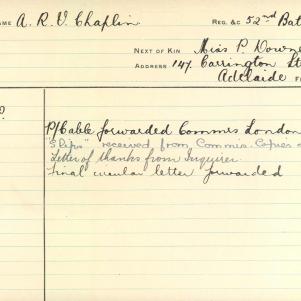 NAME A. R. V. Chaplin REG. &C 52nd Bat
NEXT OF KIN Miss P. Downe
ADDRESS 147. Carrington St
Adelaide
P/Cable forwarded Commis London
Slips" received from Commis. Copies
Letter of thanks from Inquirer
Final circular letter forwarded